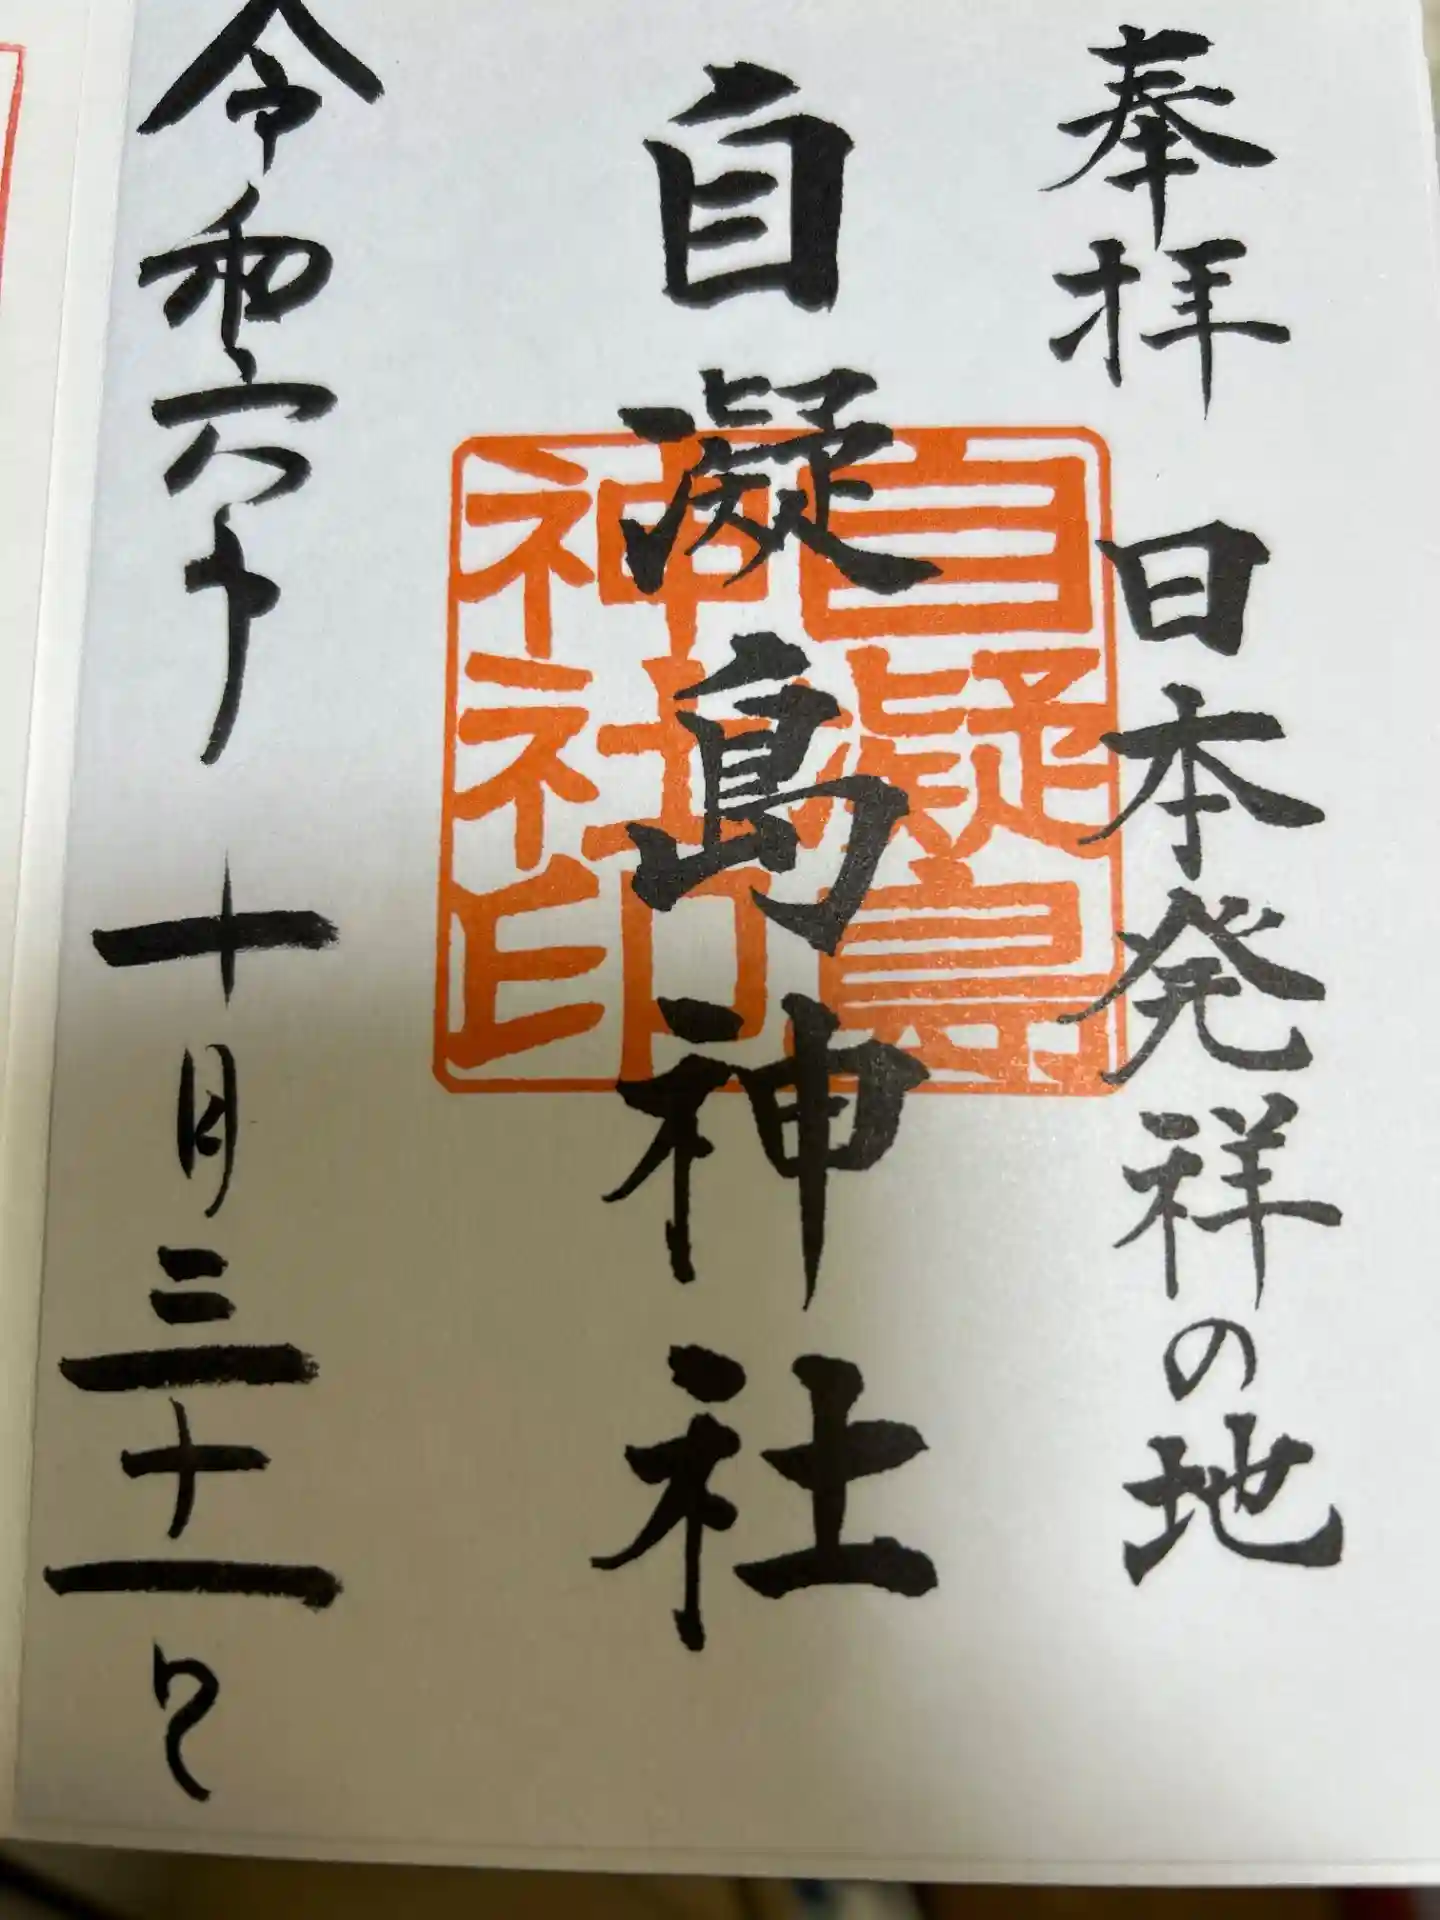 奉拝 日本発祥の地
自凝島神社
自凝島
神社印
令和六年 十月三十一日